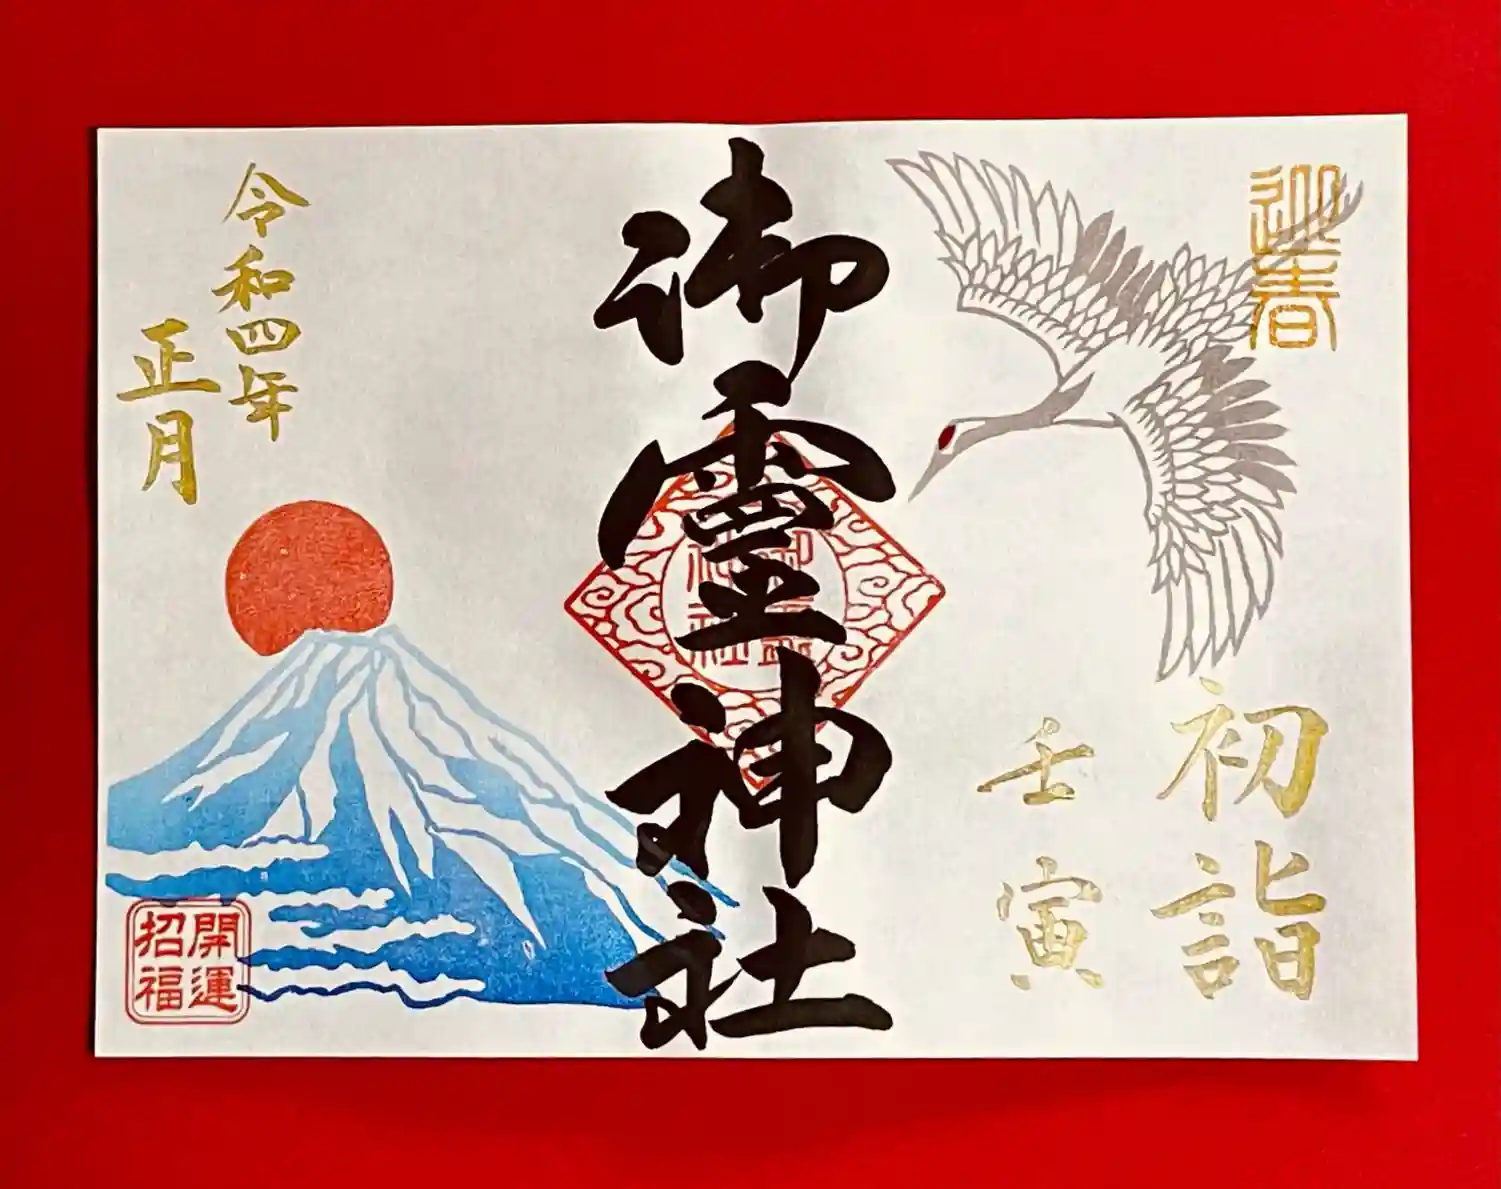 迎春
初詣
壬寅
御霊神社
御霊
神社
令和四年
正月
開運
招福